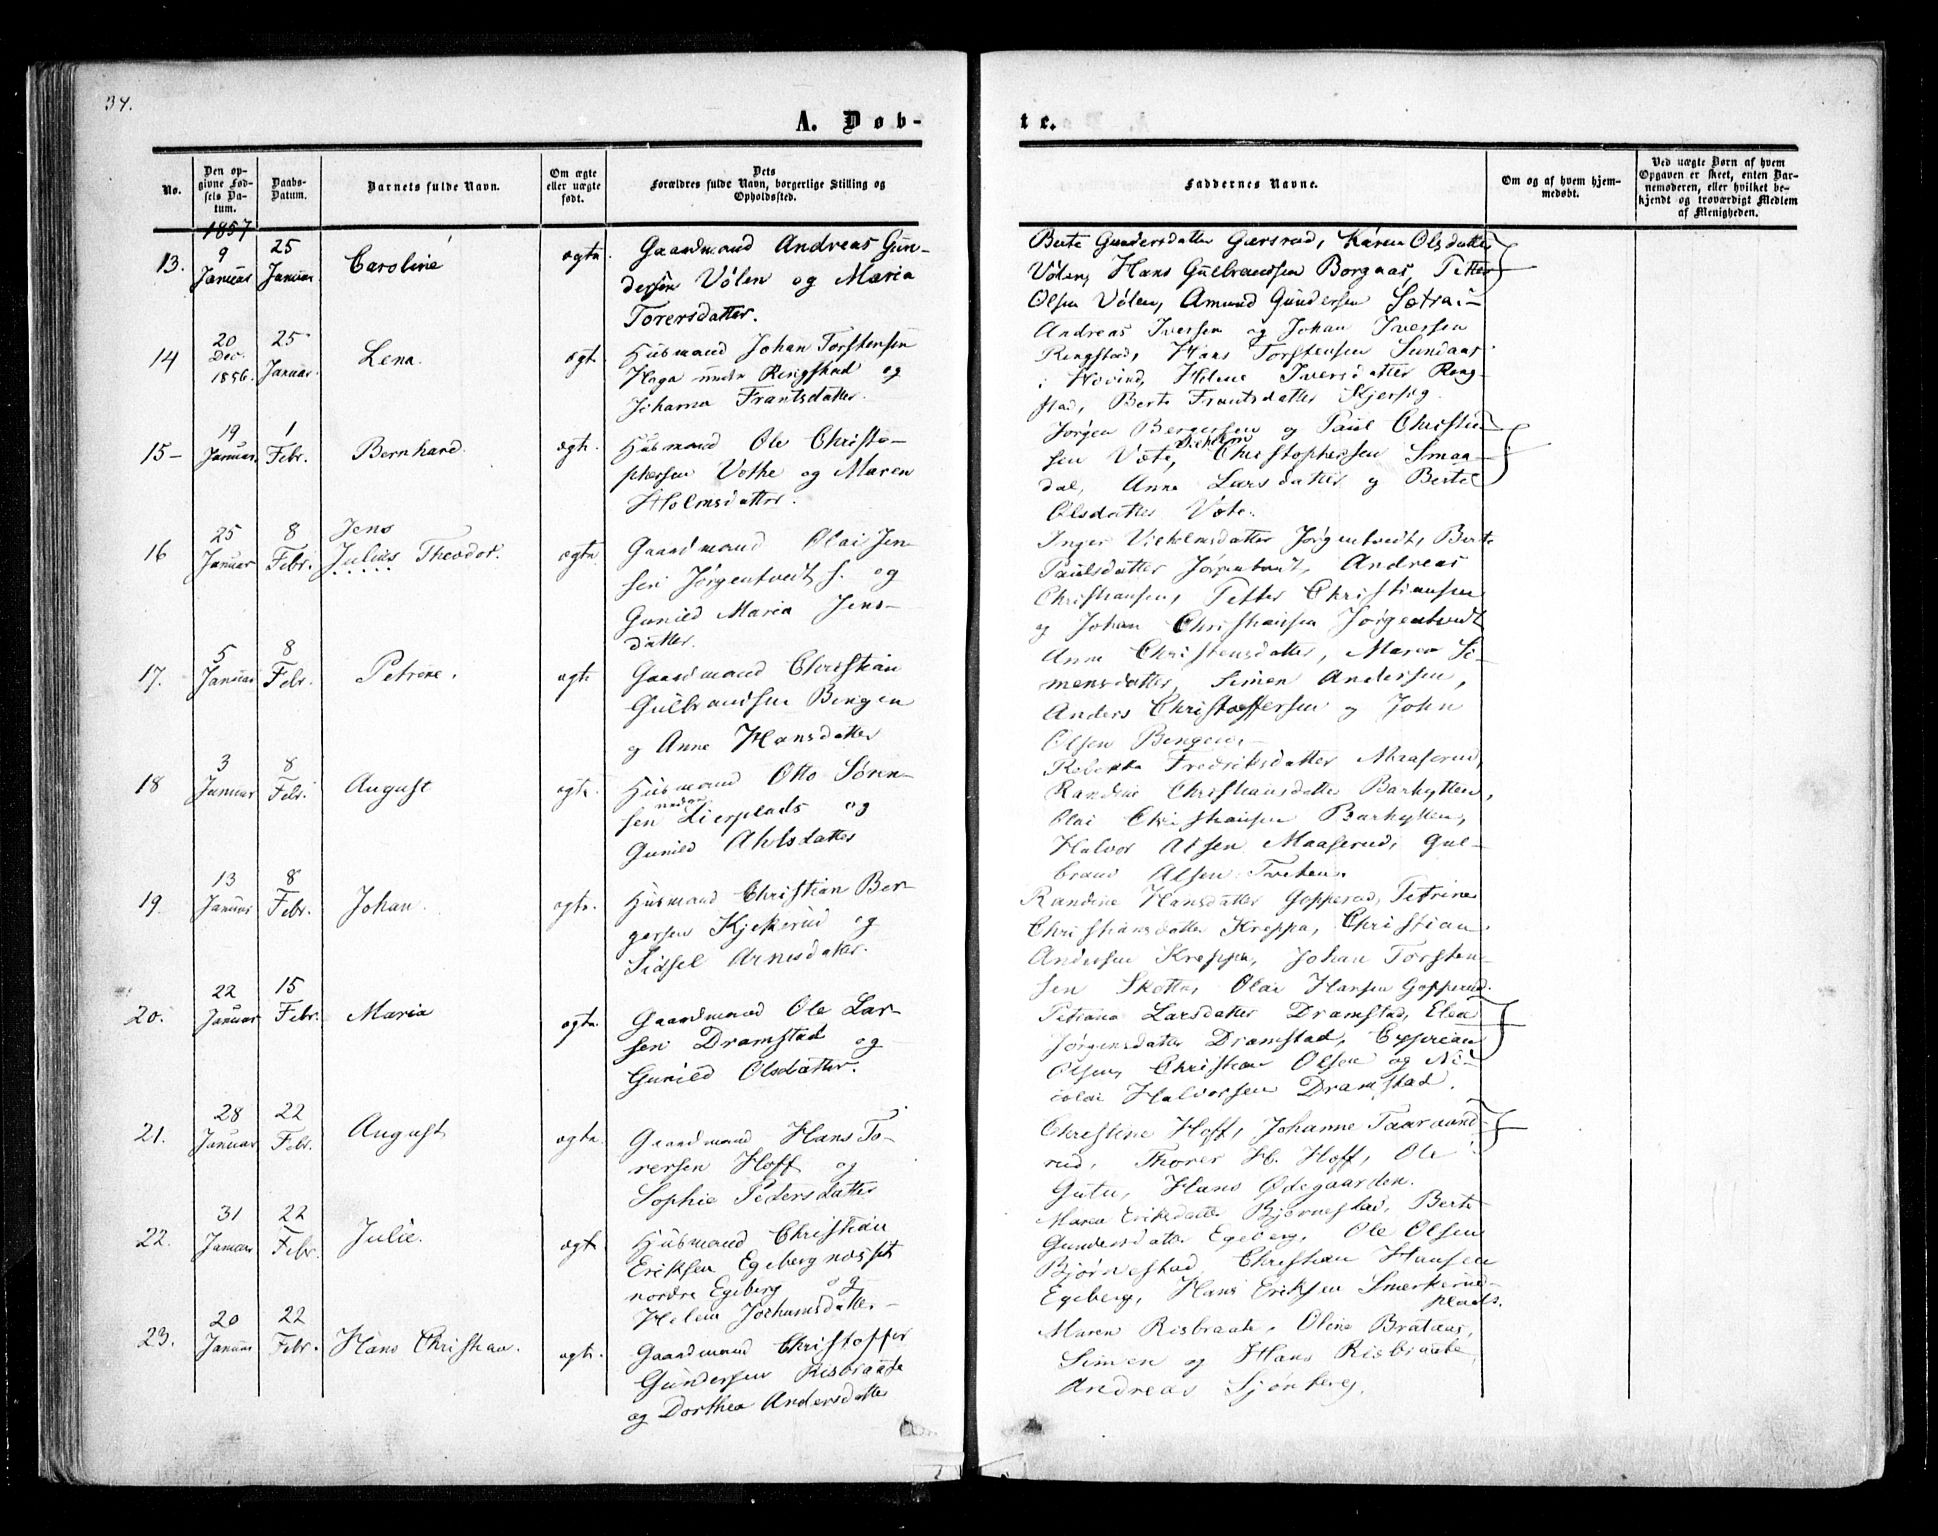 34.
A. Døb-
te.
No.
Den op-
givne Fød-
sels Da-
tum.
Daabs-
Datum.
Barnets fulde Navn.
Om ægte
eller uægte
født.
Dets
Forældres fulde Navn, borgerlige Stilling og
Opholdssted.
Faddernes Navne.
Om og af hvem hjem-
medøbt.
Ved uægte Børn af hvem
Opgaven er skeet, enten Bar-
nemoderen, eller hvilket be-
kjendt og troværdigt Medlem
af Menigheden.
1857
13.
9
Januar
25
Januar
Caroline
ægte.
Gaardmand Andreas Gun-
dersen Vølen og Maria
Torersdatter.
Berte Gundersdatter Gersrud, Karen Olsdatter
Vølen, Hans Gulbrandsen Borgaas, Petter
Olsen Vølen, Amund Gundersen Sætra.
14
20
Dec.
1856.
25
Januar.
Lena.
ægte.
Husmand Johan Torstensen
Haga under Ringstad og
Johanna Frantsdatter.
Andreas Iversen og Johan Iversen
Ringstad, Hans Torstensen Sundaas
i Hovind, Helene Iversdatter Ring-
stad, Berte Frantsdatter
15
19
Januar.
1
Febr.
Bernhard.
ægte.
Husmand Ole Christo-
phersen Vethe og Maren
Holmsdatter.
Jørgen Bergersen og Paul Christi-
sen Væte, Christophersen Smaa-
dal, Anne Larsdatter og Berte
Olsdatter Væte.
16
25
Januar
8
Febr.
Jens
Julius Theodor.
ægte
Gaardmand Olai Jen-
sen Jørgentvedt s. og
Gunild Maria Jens-
datter.
Inger Vilholmsdatter Jørgentvedt, Berte
Paulsdatter Jørgentvedt, Andreas
Christiansen, Petter Christiansen
og Johan Christiansen Jørgentvedt
17.
5
Januar
8
Febr.
Petrine.
ægte
Gaardmand Christian
Gulbrandsen Bingen
og Anne Hansdatter
Anne Christensdatter, Maren Si-
mensdatter, Simen Andersen,
Anders Christoffersen og John
Olsen Bingen.
18
3
Januar
8
Febr.
August
ægte.
Husmand Otto Søren-
nedre
sen Lierplads og
Gunild Ahlsdatter
Rebekka Fredriksdatter Maaserud,
Randine Christiansdatter Barhytten,
Olai Christiansen Barhytten,
Halvor Alsen Maaserud, Gul-
brand Alsen Tveten.
19.
13
Januar
8
Febr.
Johan.
ægte.
Husmand Christian Ber-
gersen Kjekerud og
Sidsel Arnesdatter.
Randine Hansdatter Gopperud, Petrine
Christiansdatter Kreppa, Christian
Andersen Kreppa, Johan Torsten-
sen Skotta, Olai Hansen Gopperud.
20.
22
Januar
15
Febr.
Maria
ægte.
Gaardmand Ole Lar-
sen Dramstad og
Gunild Olsdatter.
Petrana Larsdatter Dramstad, Elen
Jørgensdatter Dramstad,
Olsen, Christian Olsen og Ni-
colai Halvorsen Dramstad.
21.
28
Januar
22
Febr.
August
ægte.
Gaardmand Hans To-
rersen Hoff og
Sophie Pedersdatter
Christine Hoff, Johanne Taarand-
rud, Thorer H. Hoff, Ole
Gutu, Hans Ødegaarden.
22.
31
Januar
22
Febr.
Julie.
ægte.
Husmand Christian
Eriksen Egebergnæsset
nordre Egeberg og
Helene Jochumsdatter
Maren Eriksdatter Bjørnestad, Berte
Gundersdatter Egeberg, Ole Olsen
Bjørnestad, Christian Hansen
Egeberg, Hans Eriksen
plads.
23.
20
Januar
22
Febr.
Hans Christian.
ægte.
Gaardmand Christoffer
Gundersen Risbraate
og Dorthea Andersdatter
Maren Risbraate, Oline Brataas,
Simen og Hans Risbraate,
Andreas Sjønberg.